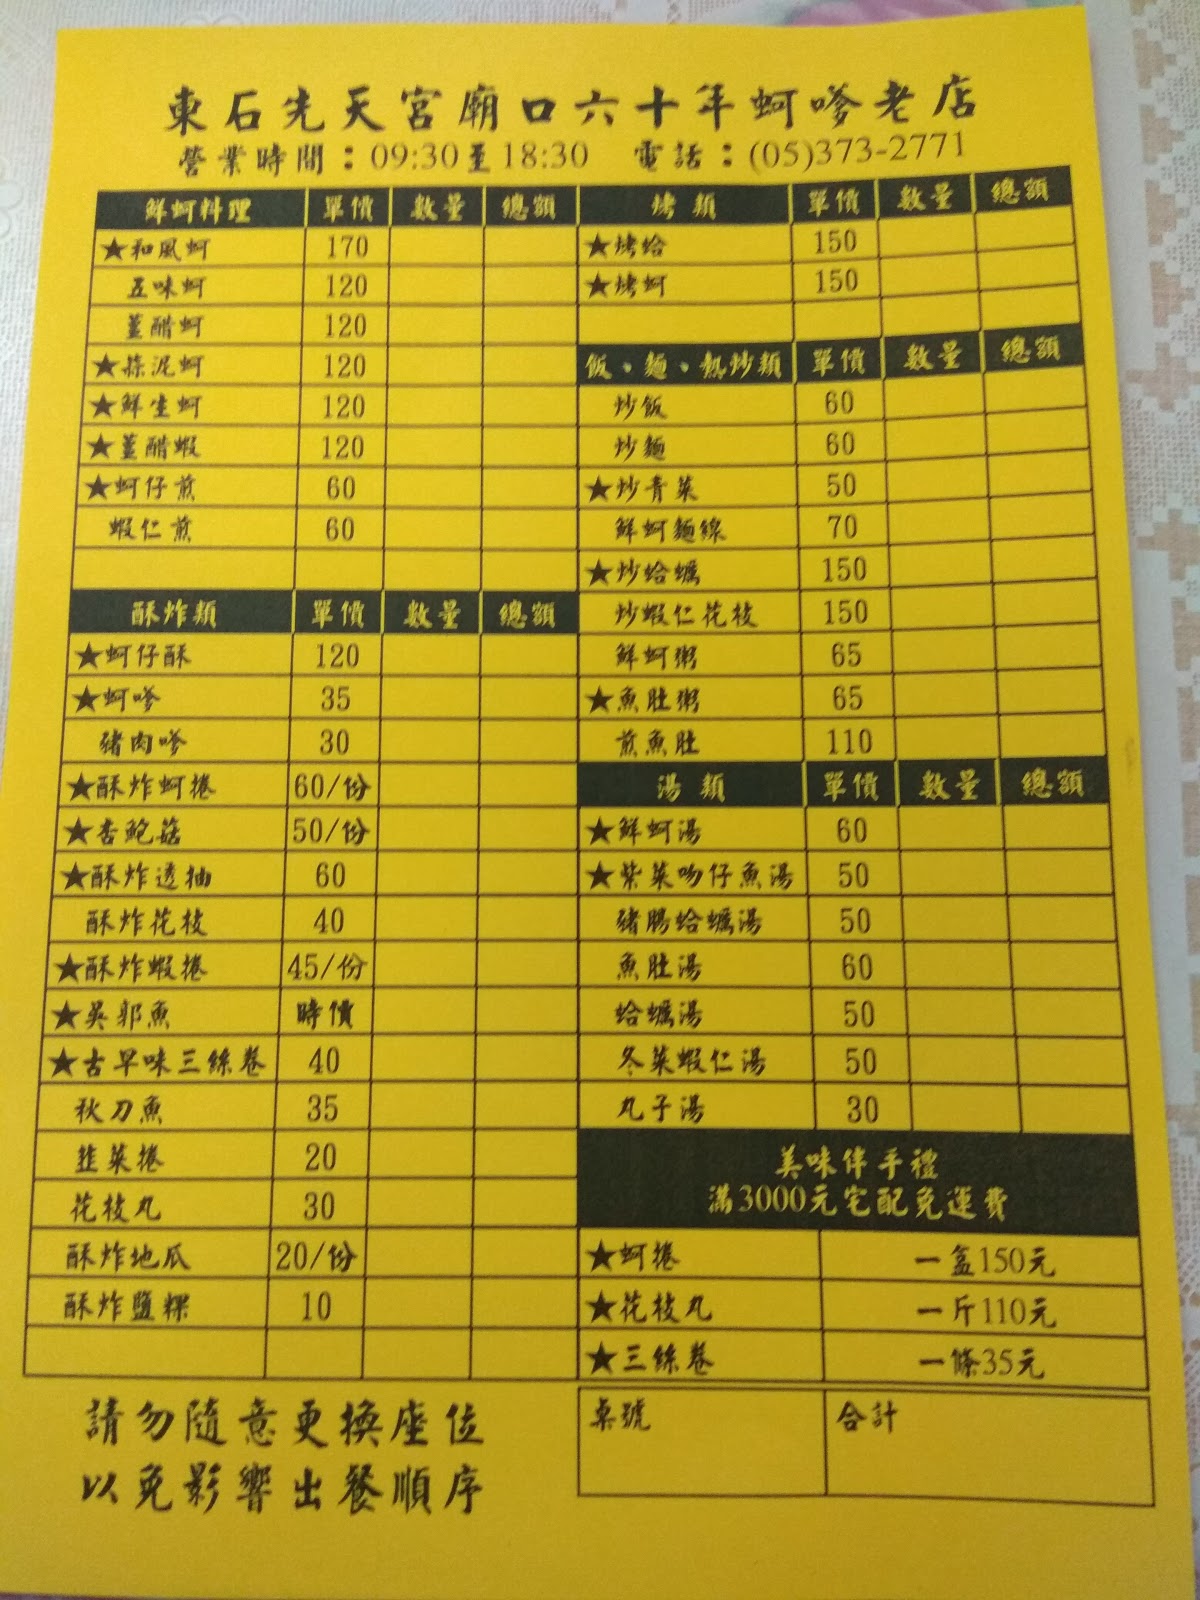 東石先天宮廟口六十年蚵嗲老店
營業時間：09:30至18:30 電話：(05)373-2771
鮮蚵料理 單價 數量 總額
★和風蚵 170
五味蚵 120
薑醋蚵 120
★蒜泥蚵 120
★鮮生蚵 120
★薑醋蝦 120
★蚵仔煎 60
蝦仁煎 60
酥炸類 單價 數量 總額
★蚵仔酥 120
★蚵嗲 35
豬肉嗲 30
★酥炸蚵捲 60/份
★杏鮑菇 50/份
★酥炸透抽 60
酥炸花枝 40
★酥炸蝦捲 45/份
★吳郭魚 時價
★古早味三絲卷 40
秋刀魚 35
韮菜捲 20
花枝丸 30
酥炸地瓜 20/份
酥炸鹽粿 10
烤類 單價 數量 總額
★烤蛤 150
★烤蚵 150
飯、麵、熱炒類 單價 數量 總額
炒飯 60
炒麵 60
★炒青菜 50
鮮蚵麵線 70
★炒蛤蠣 150
炒蝦仁花枝 150
鮮蚵粥 65
★魚肚粥 65
煎魚肚 110
湯類 單價 數量 總額
★鮮蚵湯 60
★紫菜吻仔魚湯 50
豬腸蛤蠣湯 50
魚肚湯 60
蛤蠣湯 50
冬菜蝦仁湯 50
丸子湯 30
美味伴手禮
滿3000元宅配免運費
★蚵捲 一盒150元
★花枝丸 一斤110元
★三絲卷 一條35元
桌號 合計
請勿隨意更換座位
以免影響出餐順序